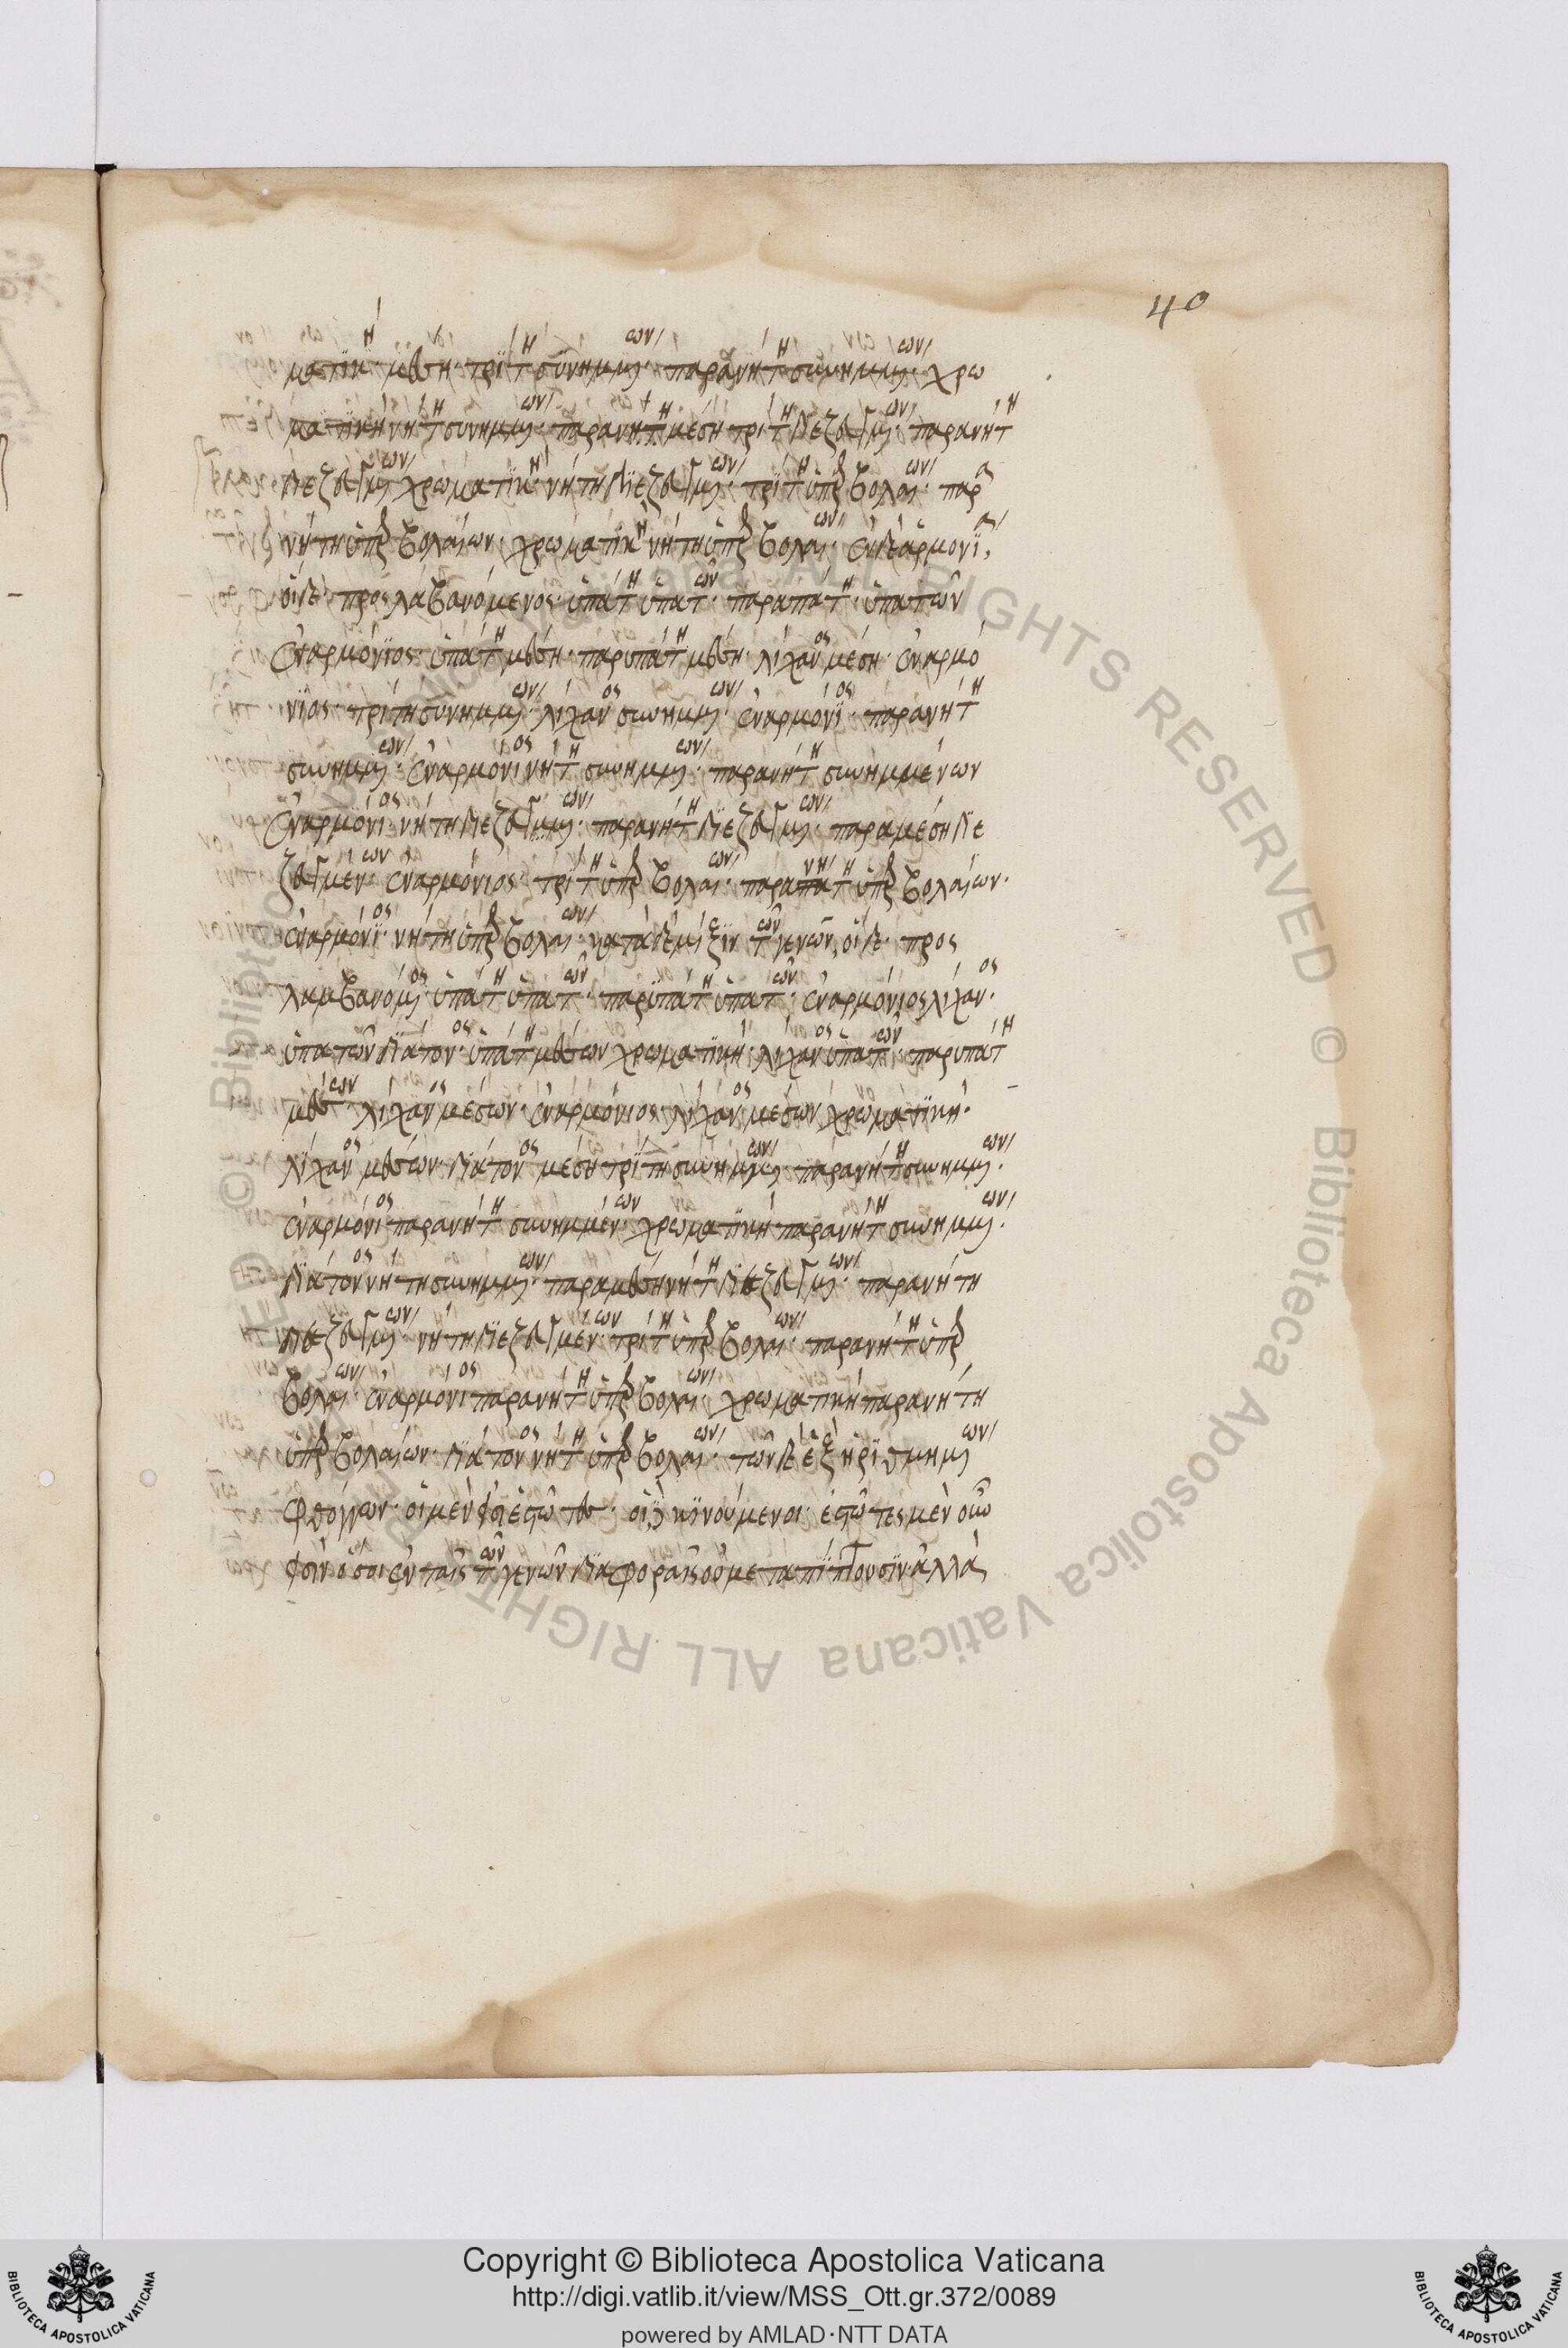 40
ματικὴ μέση· τρίτη συνημμένων· παρανήτη συνημμένων· χρω
ματικὴ νήτη συνημμένων· παρανήτη μέση τρίτη διεζευγμένων· παρανήτη
διεζευγμένων χρωματικὴ· νήτη διεζευγμένων· τρίτη ὑπερβολαίων· παρα
νήτη ὑπερβολαίων· χρωματικὴ νήτη ὑπερβολαίων· ἐν δὲ ἁρμονίᾳ,
οἵδε· προσλαβανόμενος· ὑπάτη ὑπατῶν· παραπάτη· ὑπατῶν
ἐναρμόνιος· ὑπάτη μέση· παρυπάτη μέση· λίχανος μέση· ἐναρμό
νιος· τρίτη συνημμένων· λίχανος συνημμένων· ἐναρμόνιος· παρανήτη
συνημμένων· ἐναρμόνιος νήτη συνημμένων· παρανήτη συνημμένων
ἐναρμόνιος νήτη διεζευγμένων· παρανήτη διεζευγμένων· παραμέση διε
ζευγμένων· ἐναρμόνιος· τρίτη ὑπερβολαίων· παρανήτη ὑπερβολαίων·
ἐναρμόνιος· νήτη ὑπερβολαίων· κατὰ δὲ μίξιν τῶν γενῶν, οἵδε· προς
λαμβανόμενος· ὑπάτη ὑπατῶν· παρυπάτη ὑπατῶν· ἐναρμόνιος λίχανος·
ὑπατῶν διάτονος· ὑπάτη μέσων χρωματική· λίχανος ὑπατῶν· παρυπάτη
μέσων· λίχανος μέσων· ἐναρμόνιος· λίχανος μέσων χρωματική·
λίχανος μέσων· διάτονος μέση τρίτη συνημμένων· παρανήτη συνημμένων·
ἐναρμόνιος παρανήτη συνημμένων· χρωματικὴ παρανήτη συνημμένων·
διάτονος νήτη συνημμένων· παραμέση νήτη διεζευγμένων· παρανήτη
διεζευγμένων· νήτη διεζευγμένων· τρίτη ὑπερβολαίων· παρανήτη ὑπερ
βολαίων· ἐναρμόνιος παρανήτη ὑπερβολαίων· χρωματικὴ παρανήτη
ὑπερβολαίων· διάτονος νήτη ὑπερβολαίων· τῶν δὲ ἐξηριθμημένων
φθόγγων· οἱ μέν εἰσιν ἑστῶτες· οἱ δὲ κινούμενοι· ἑστῶτες μὲν οὖν
εἰσὶν ὅσοι ἐν ταῖς τῶν γενῶν διαφοραῖς οὐ μεταπίπτουσιν ἀλλὰ
Copyright © Biblioteca Apostolica Vaticana
http://digi.vatlib.it/view/MSS_Ott.gr.372/0089
powered by AMLAD·NTT DATA